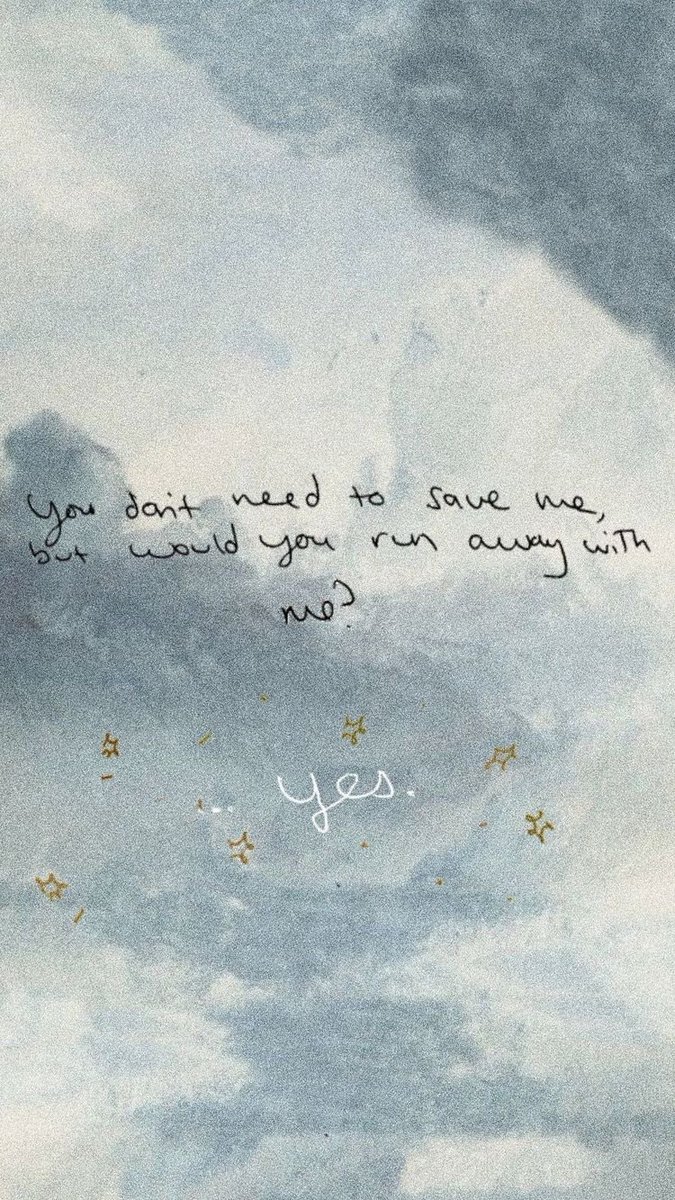 you don't need to save me,
but would you run away with
me?
... yes.